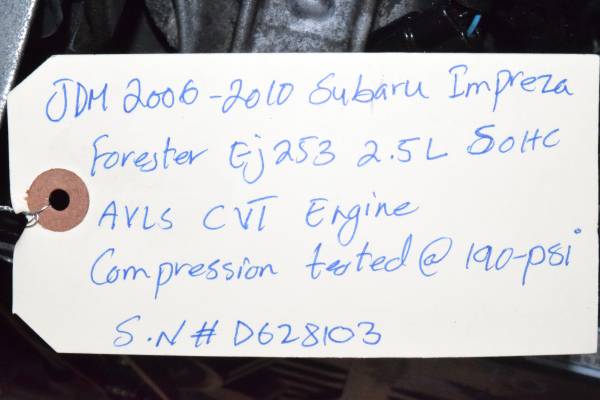 JDM 2006-2010 Subaru Impreza
Forester Ej253 2.5L SOHC
AVLS CVT Engine
Compression tested @ 190-psi
S.N# D628103